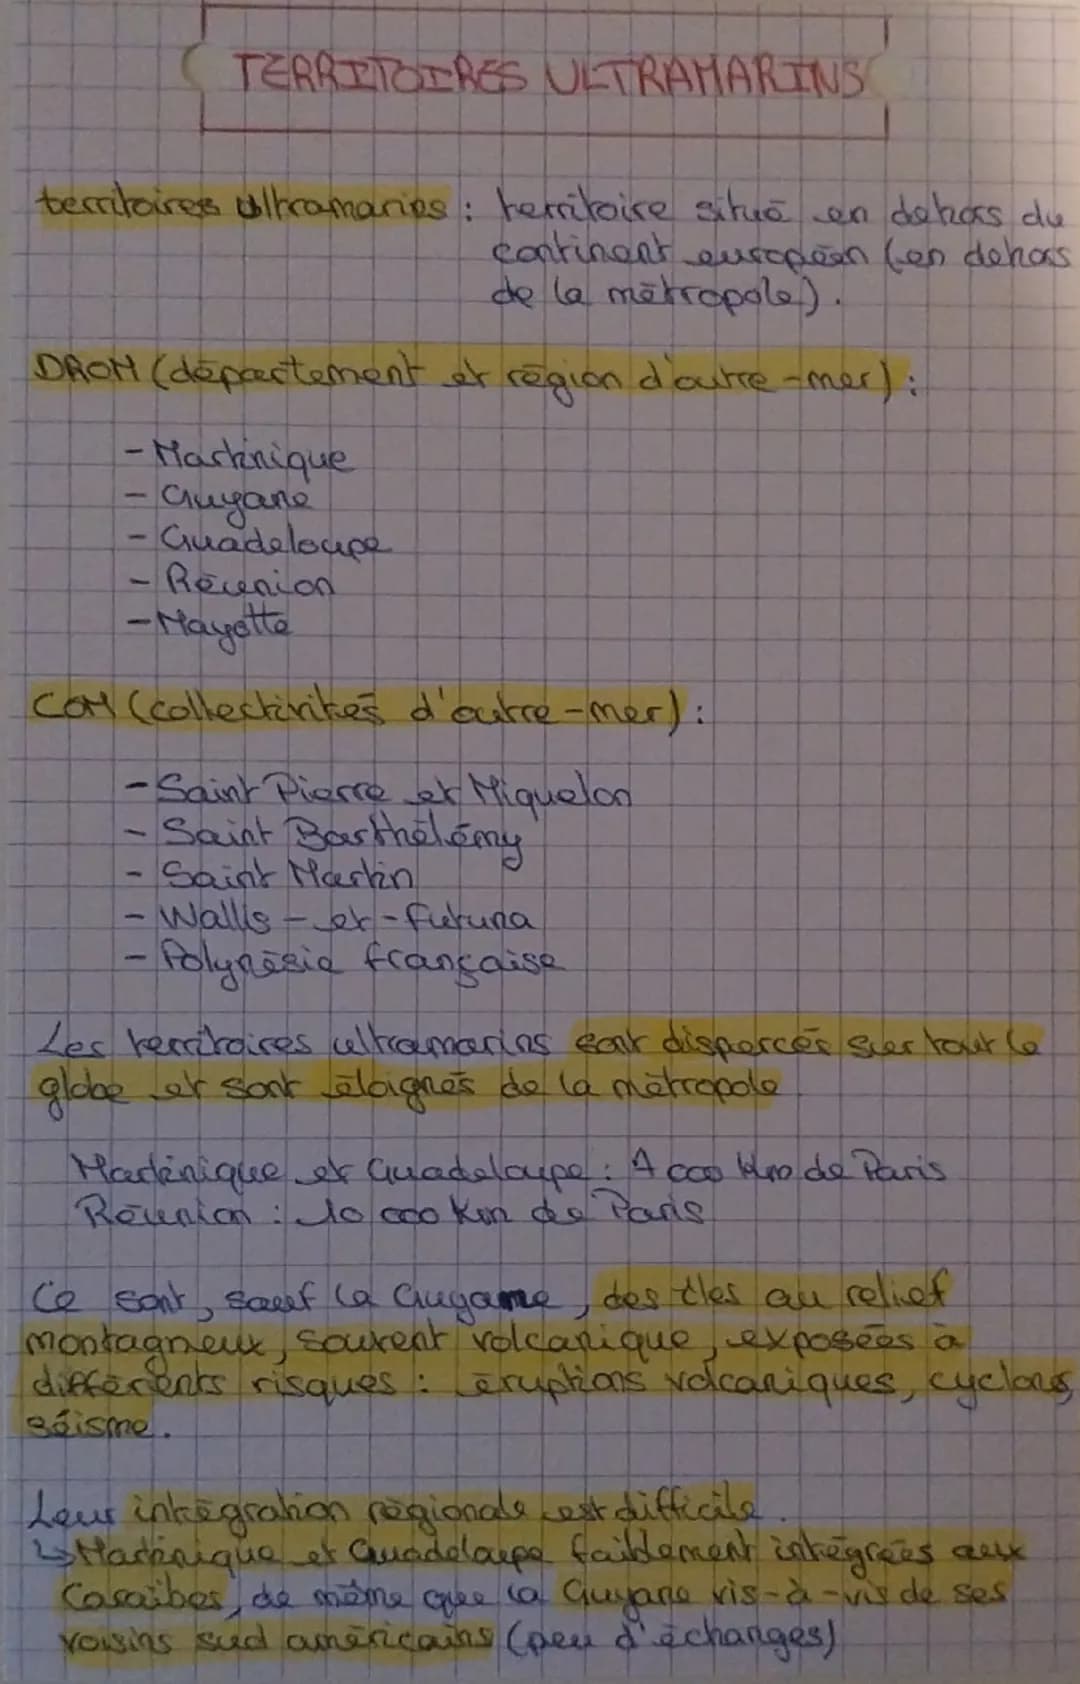 TERRITOIRES ULTRAMARINS
territoires ultramarins : territoire situé en dehors du
continent européen (en dehors
de la métropole).
DROM (département et région d'outre-mer) :
- Martinique
- Guyane
- Guadeloupe
- Réunion
- Mayotte
COM (collectivités d'outre-mer) :
- Saint Pierre et Miquelon
- Saint Barthélémy
- Saint Martin
- Wallis-et-futuna
- Polynésie française
Les territoires ultramarins sont dispersés sur tout le
globe et sont éloignés de la métropole
Martinique et Guadeloupe : 7 000 km de Paris
Réunion : 10 000 km de Paris
Ce sont, sauf la Guyane, des îles au relief
montagneux, souvent volcanique, exposées à
différents risques : éruptions volcaniques, cyclons,
séisme.
Leur intégration régionale est difficile.
↳ Martinique et Guadeloupe faiblement intégrées aux
Caraïbes, de même que la Guyane vis-à-vis de ses
voisins sud américains (peu d'échanges)